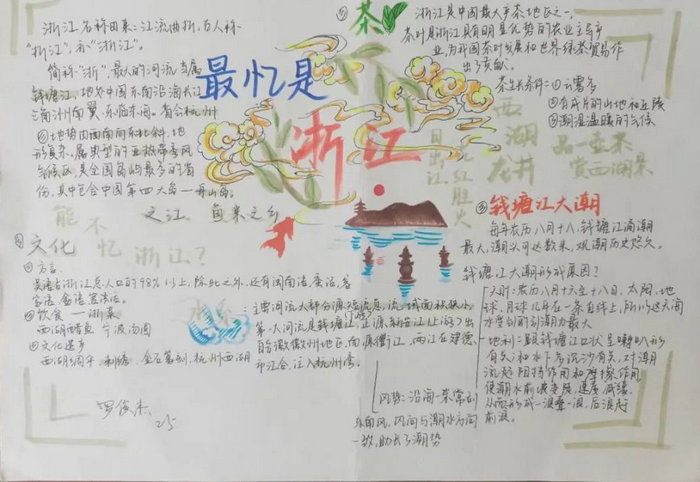 浙江名称由来：江流曲折，古人称
"折江"，亦"浙江"。
简称"浙"，最大的河流当属
钱塘江，地处中国东南沿海长江
三角洲南翼，东临东海。省会杭州
地势由西南向东北斜，地
形复杂，属典型的亚热带季风
气候区，是全国岛屿最多的省
份，其中包含中国第四大岛一舟山岛。
之江 鱼米之乡
最忆是
浙江
能不忆浙江？
日出江
红胜火
⑤茶
浙江是中国最大产茶地区之一，
茶叶是浙江具有明显优势的农业主导产
业，为我国茶叶发展和世界绿茶贸易作
出了贡献。
茶生长条件：①云雾多
②有成片的山地和丘陵
③潮湿温暖的气候
西湖
龙井
品一壶茶
赏西湖景
③钱塘江大潮
每年农历八月十八，钱塘江涌潮
最大，潮头可达数米，观潮历史悠久。
钱塘江大潮形成原因？
天时：农历八月十六至十八日，太阳、地
球、月球几乎在一条直线上，所以这天海
水受到的引潮力最大
地利：跟钱塘江口状呈喇叭形
有关和水下多沉沙有关，对潮
流起阻挡作用和摩擦作用，
使潮水前坡变陡，速度减缓，
从而形成一浪叠一浪，后浪赶
前浪。
风势：沿海一带常刮
东南风，风向与潮水方向
一致，助长了潮势
文化
①方言
吴语占浙江总人口的98%以上，除此之外，还有闽南语、畲话、客
家语
②饮食—浙菜
西湖醋鱼 宁波汤圆
③文化遗乡
西湖绸伞、金石篆刻，杭州西湖
水系
主要河流大部分源短流急，流域面积狭小，
第一大河流是钱塘江，
自皖徽徽州地区，南源衢江，两江在建德
市汇合，注入杭州湾。
2.5